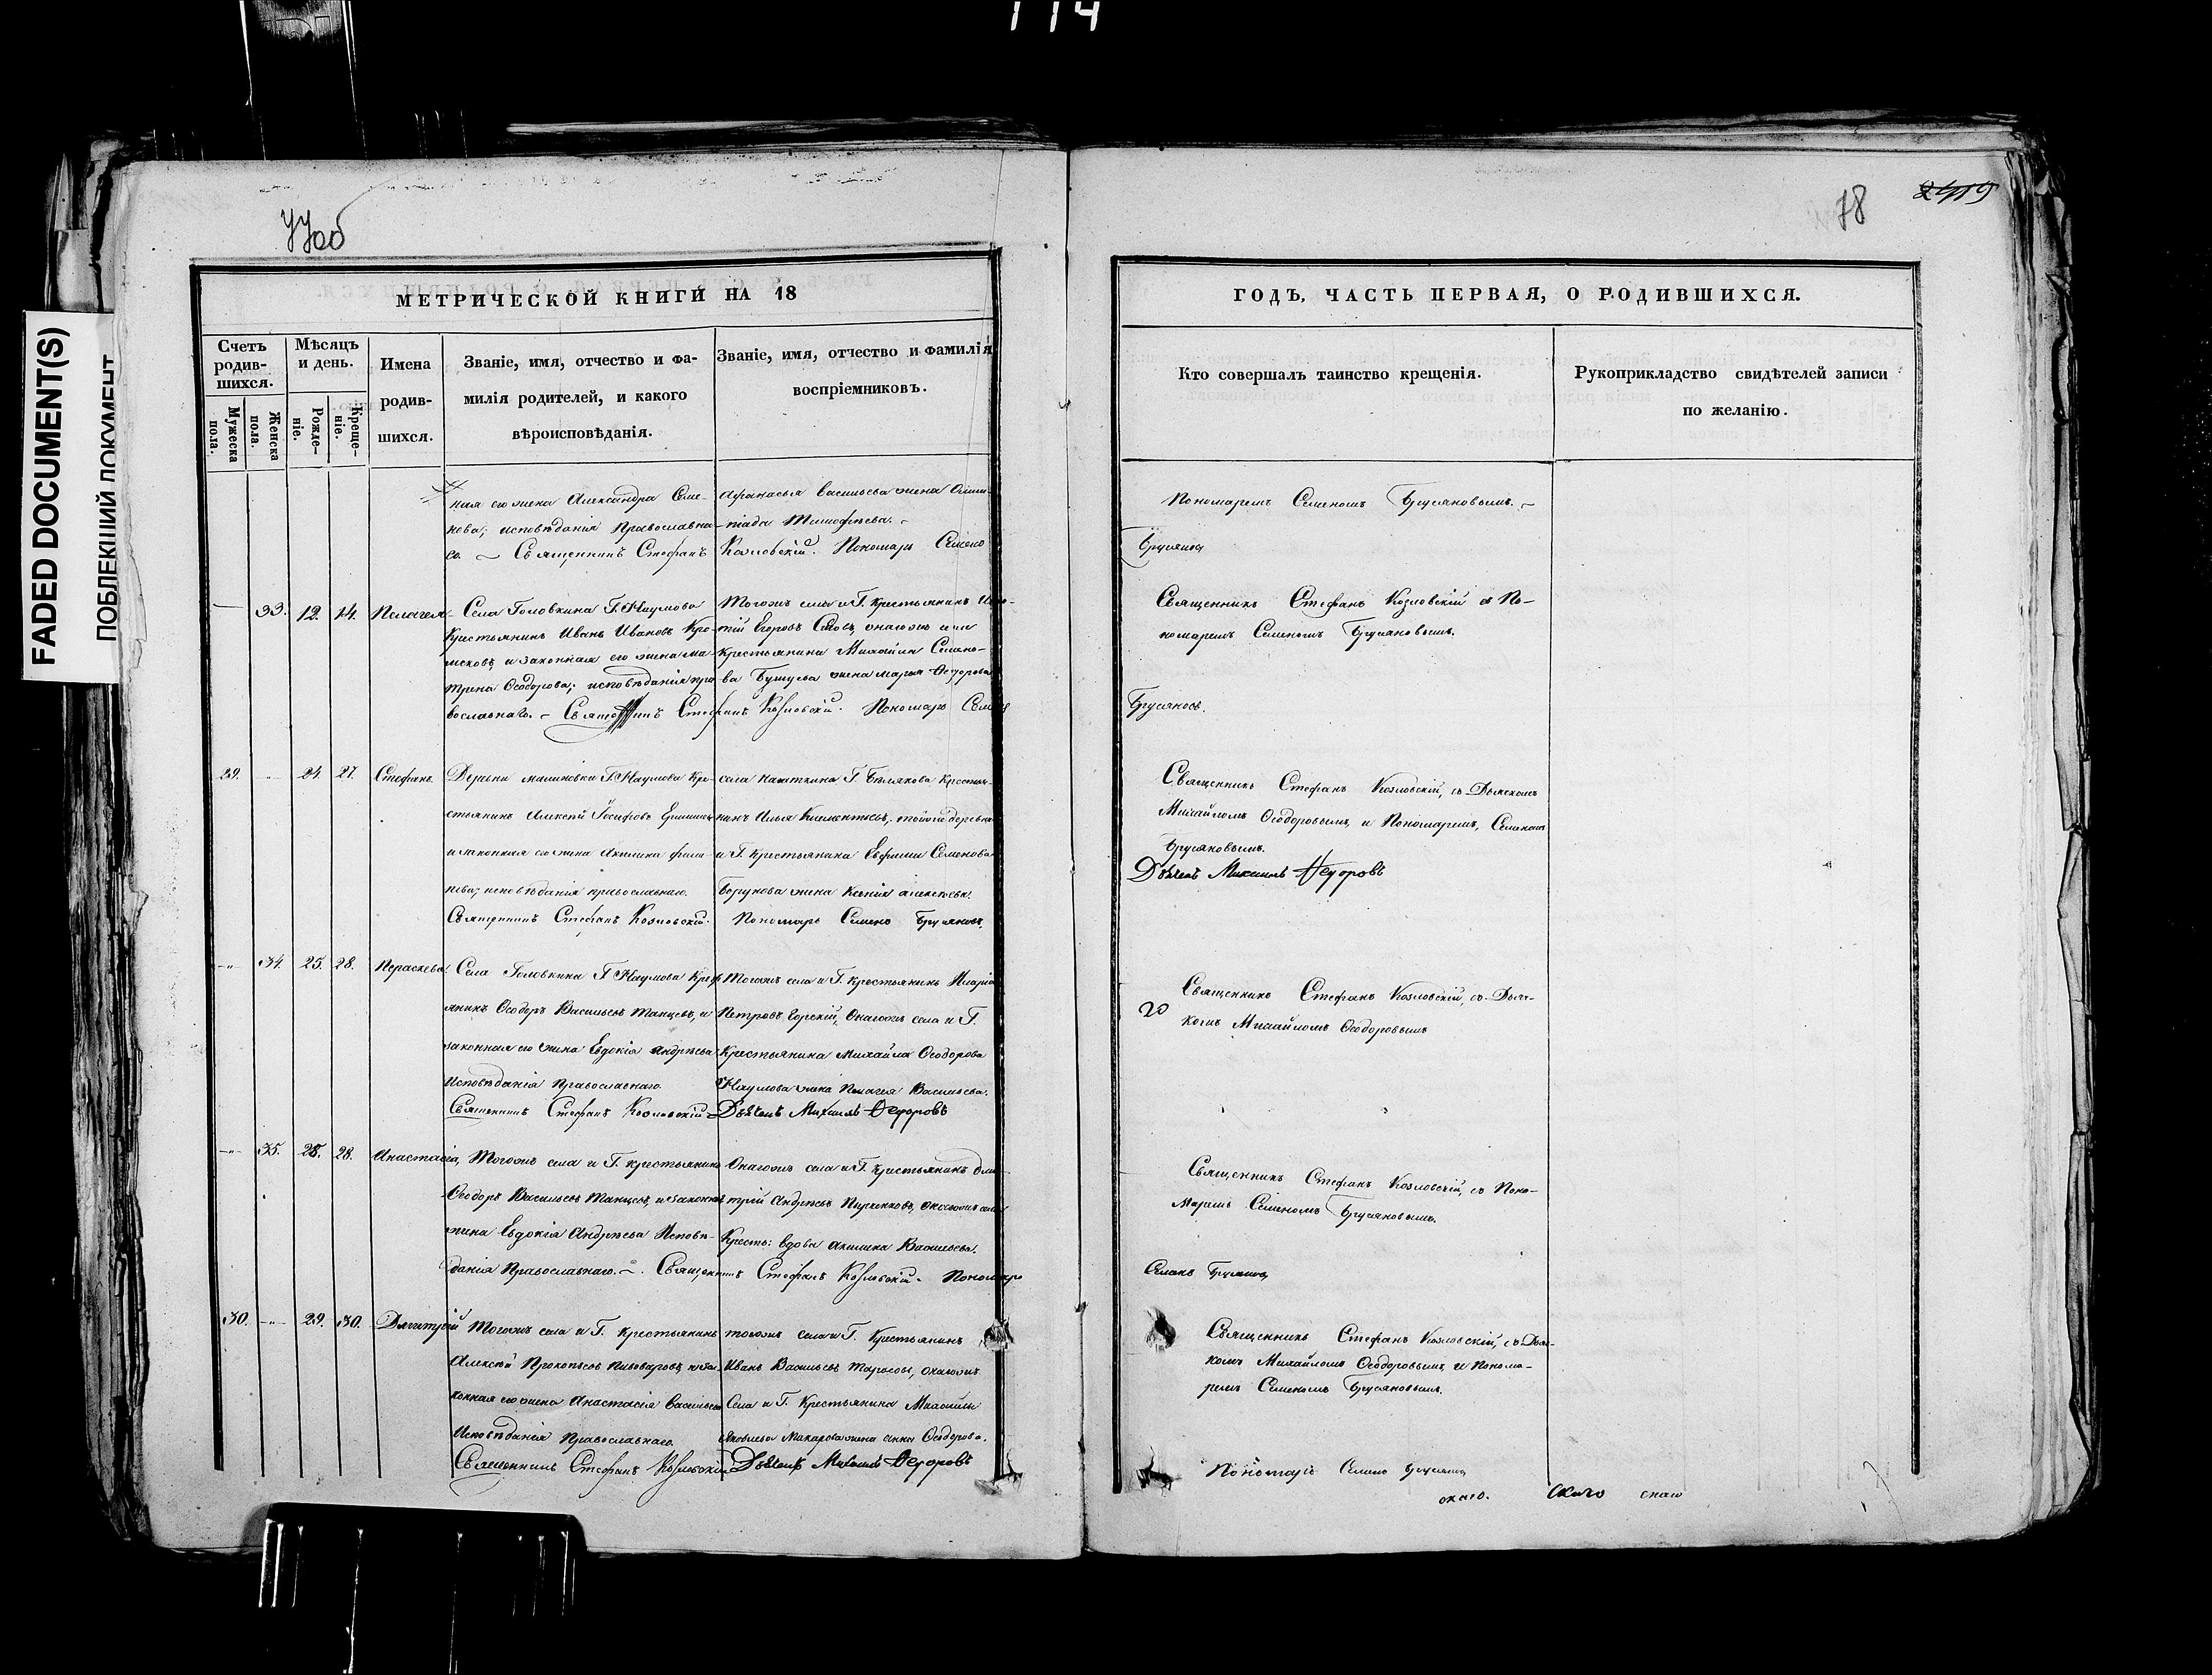 114
FADED DOCUMENT(S)
ПОБЛЕКШИЙ ДОКУМЕНТ
77об
МЕТРИЧЕСКОЙ КНИГИ НА 18
Счетъ родившихся.
Мужеска пола.
Женска пола.
Мѣсяцъ и день.
Рожде-ніе.
Креще-ніе.
Имена родив-шихся.
Званіе, имя, отчество и фа-
милія родителей, и какого
вѣроисповѣданія.
Званіе, имя, отчество и фамилія
воспріемниковъ.
ная его жена Александра Семе-
нова; исповѣданія Православна-
го. – Священникъ Стефанъ Козловскій. Пономарь Семенъ
Афанасья Васильева жена
Тимофѣева. –
33. 12. 14. Пелагея
Села Головкина Г. Наумова
Крестьянинъ Иванъ Ивановъ
и законная его жена Ма-
трена Ѳеодорова; исповѣданія пра-
вославнаго. – Священникъ Стефанъ Козловскій. Пономарь Семенъ
Тогожъ села и Г. Крестьянинъ
Егоровъ онагожъ села
Крестьянина Михайла Семено-
ва жена Марья Ѳедорова
29. „ 24. 27. Стефанъ
Деревни Малиновки Г. Наумова Кре-
стьянинъ Алексѣй
и законная его жена Акилина Фили-
пова; исповѣданія православнаго.
Священникъ Стефанъ Козловскій. Пономарь Семенъ Брусяновъ
села Г. Бѣлякова Крестья-
нинъ Илья Климентьевъ, тойже деревни
и Г. Крестьянина Евфима Семенова
жена Ксенія Алексѣева.
-„- 34. 25. 28. Параскева
Села Головкина Г. Наумова Крест
янинъ Ѳеодоръ Васильевъ Танцевъ, и
законная его жена Евдокія Андрѣева
Исповѣданія Православнаго.
Священникъ Стефанъ Козловскій Дьячекъ Михаилъ Ѳедоровъ
Тогожъ села и Г. Крестьянинъ
Петровъ Горскій, Онагожъ села и Г.
Крестьянина Михайла Ѳеодорова
Наумова жена Пелагея Васильева.
-„- 35. 28. 28. Анастасія,
Тогожъ села и Г. Крестьянинъ
Ѳеодоръ Васильевъ Танцевъ, и законная
жена Евдокія Андрѣева Исповѣ-
данія Православнаго. –. Священникъ Стефанъ Козловскій. Пономарь
Онагожъ села и Г. Крестьянинъ Дми-
трій Андрѣевъ онагожъ села
Кресть: вдова Акилина Васильева.
30. -„- 29. 30. Димитрій
Тогожъ села и Г. Крестьянинъ
Алексѣй Прокопьевъ Пивоваровъ, и за-
конная его жена Анастасія Васильева
Исповѣданія Православнаго.
Священникъ Стефанъ Козловскій Дьячекъ Михаилъ Ѳедоровъ
тогожъ села и Г. Крестьянинъ
Иванъ Васильевъ Тарасовъ, онагожъ
Села и Г. Крестьянина Михайлы
Яковлева Макарова жена Анна Ѳеодорова.
78
2419
ГОДЪ, ЧАСТЬ ПЕРВАЯ, О РОДИВШИХСЯ.
Кто совершалъ таинство крещенія.
Рукоприкладство свидѣтелей записи
по желанію.
Пономаремъ Семеномъ Брусяновымъ. –
Брусяновъ
Священникъ Стефанъ Козловскій съ По-
номаремъ Семеномъ Брусяновымъ.
Брусяновъ.
Священникъ Стефанъ Козловскій, съ Дьячкомъ
Михайломъ Ѳеодоровымъ, и Пономаремъ, Семеномъ
Брусяновымъ.
Дьячекъ Михаилъ Ѳедоровъ
Священникъ Стефанъ Козловскій, съ Дьяч-
комъ Михайломъ Ѳеодоровымъ
Священникъ Стефанъ Козловскій, съ Поно-
маремъ Семеномъ Брусяновымъ.
Семенъ Брусяновъ
Священникъ Стефанъ Козловскій, съ Дьяч-
комъ Михайломъ Ѳеодоровымъ, и Понома-
ремъ Семеномъ Брусяновымъ.
Пономарь Семенъ Брусяновъ